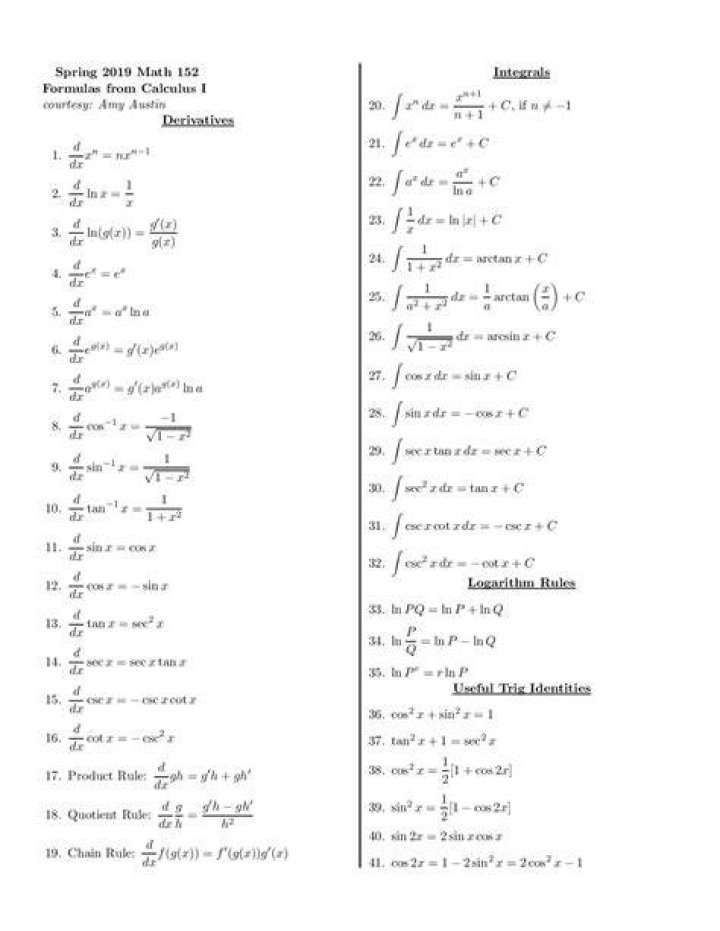 Spring 2019 Math 152
Formulas from Calculus I
courtesy: Amy Austin
Derivatives
1. d/dx x^n = nx^{n−1}
2. d/dx ln x = 1/x
3. d/dx ln(g(x)) = g′(x)/g(x)
4. d/dx e^x = e^x
5. d/dx a^x = a^x ln a
6. d/dx e^{g(x)} = g′(x)e^{g(x)}
7. d/dx a^{g(x)} = g′(x)a^{g(x)} ln a
8. d/dx cos^{−1} x = −1/√(1 − x²)
9. d/dx sin^{−1} x = 1/√(1 − x²)
10. d/dx tan^{−1} x = 1/(1 + x²)
11. d/dx sin x = cos x
12. d/dx cos x = − sin x
13. d/dx tan x = sec² x
14. d/dx sec x = sec x tan x
15. d/dx csc x = − csc x cot x
16. d/dx cot x = − csc² x
17. Product Rule: d/dx gh = g′h + gh′
18. Quotient Rule: d/dx g/h = (g′h − gh′)/h²
19. Chain Rule: d/dx f(g(x)) = f′(g(x))g′(x)
Integrals
20. ∫ x^n dx = x^{n+1}/(n + 1) + C, if n ≠ −1
21. ∫ e^x dx = e^x + C
22. ∫ a^x dx = a^x/ln a + C
23. ∫ 1/x dx = ln |x| + C
24. ∫ 1/(1 + x²) dx = arctan x + C
25. ∫ 1/(a² + x²) dx = 1/a arctan (x/a) + C
26. ∫ 1/√(1 − x²) dx = arcsin x + C
27. ∫ cos x dx = sin x + C
28. ∫ sin x dx = − cos x + C
29. ∫ sec x tan x dx = sec x + C
30. ∫ sec² x dx = tan x + C
31. ∫ csc x cot x dx = − csc x + C
32. ∫ csc² x dx = − cot x + C
Logarithm Rules
33. ln PQ = ln P + ln Q
34. ln P/Q = ln P − ln Q
35. ln P^r = r ln P
Useful Trig Identities
36. cos² x + sin² x = 1
37. tan² x + 1 = sec² x
38. cos² x = 1/2[1 + cos 2x]
39. sin² x = 1/2[1 − cos 2x]
40. sin 2x = 2 sin x cos x
41. cos 2x = 1 − 2 sin² x = 2 cos² x − 1